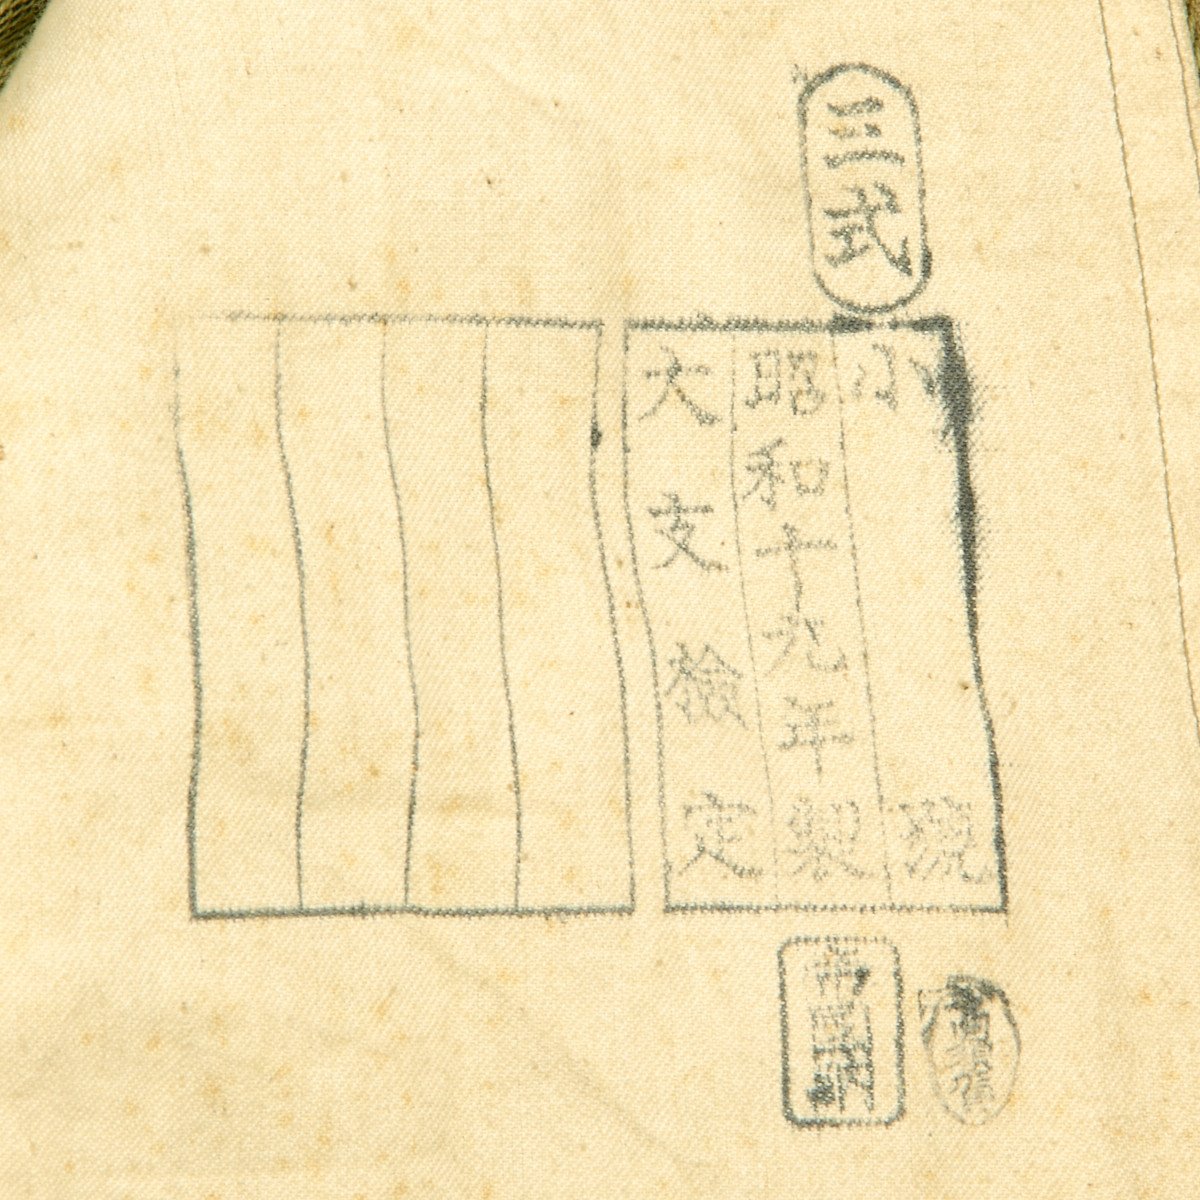 三式
小 號
昭和十九年製
大支檢定
帝國